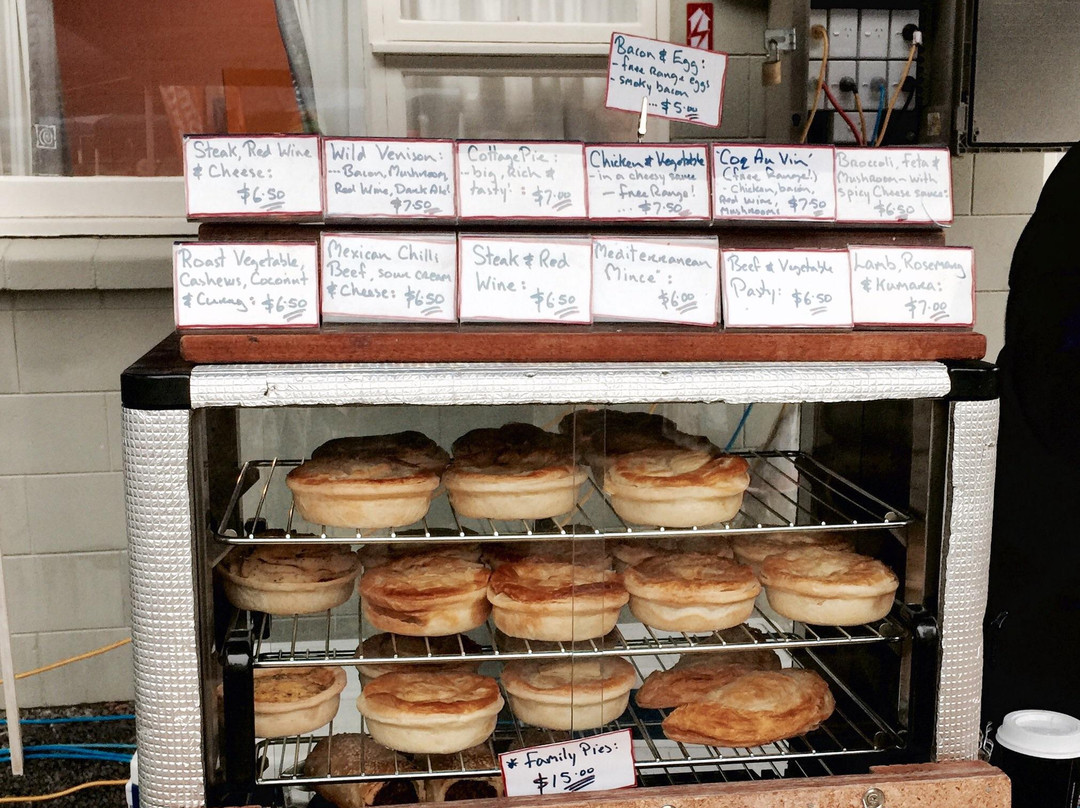 Bacon & Egg:
- free Range eggs
- smoky bacon
... $5.00
Steak, Red Wine
& Cheese:
$6.50
Wild Venison:
--- Bacon, Mushroom,
Red Wine, Dark Ale!
$7.50
Cottage Pie:
- big, Rich &
tasty! : $7.00
Chicken & Vegetable
- in a cheesy sauce
- free Range!
... $7.50
'Coq Au Vin'
(free Range!)
- Chicken, bacon,
Red wine, $7.50
Mushrooms
Broccoli, feta &
Mushroom - with
Spicy Cheese sauce:
$6.50
Roast Vegetable,
Cashews, Coconut
& Curry: $6.50
Mexican Chilli
Beef, sour cream
& Cheese: $6.50
Steak & Red
Wine:
$6.50
Mediterranean
Mince":
$6.00
Beef & Vegetable
Pasty: $6.50
Lamb, Rosemary
& Kumara:
$7.00
* Family Pies:
$15.00